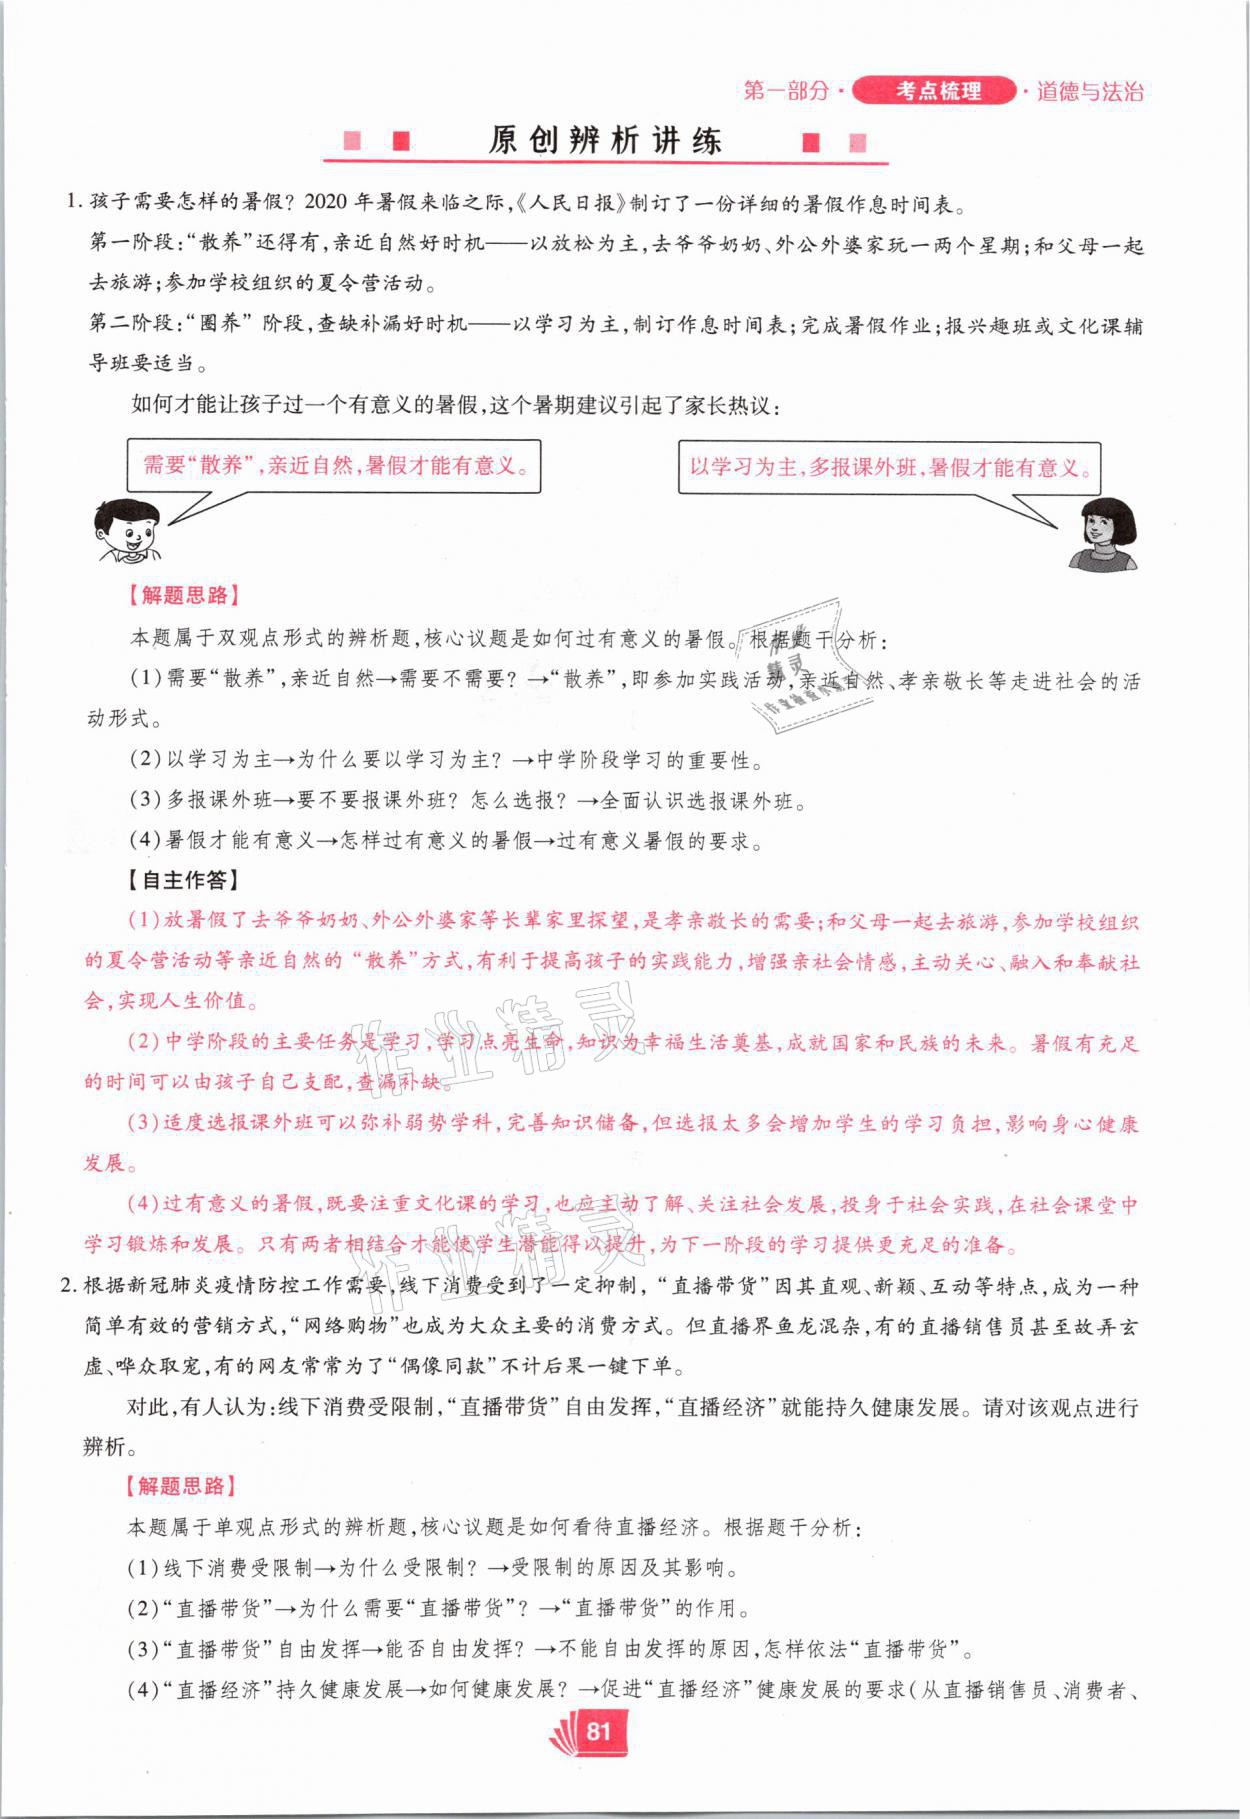 第一部分·考点梳理·道德与法治
原创辨析讲练
1. 孩子需要怎样的暑假？2020年暑假来临之际，《人民日报》制订了一份详细的暑假作息时间表。
第一阶段：“散养”还得有，亲近自然好时机——以放松为主，去爷爷奶奶、外公外婆家玩一两个星期；和父母一起
去旅游；参加学校组织的夏令营活动。
第二阶段：“圈养”阶段，查缺补漏好时机——以学习为主，制订作息时间表；完成暑假作业；报兴趣班或文化课辅
导班要适当。
如何才能让孩子过一个有意义的暑假，这个暑期建议引起了家长热议：
需要“散养”，亲近自然，暑假才能有意义。
以学习为主，多报课外班，暑假才能有意义。
【解题思路】
本题属于双观点形式的辨析题，核心议题是如何过有意义的暑假。根据题干分析：
(1)需要“散养”，亲近自然→需要不需要？→“散养”，即参加实践活动，亲近自然、孝亲敬长等走进社会的活
动形式。
(2)以学习为主→为什么要以学习为主？→中学阶段学习的重要性。
(3)多报课外班→要不要报课外班？怎么选报？→全面认识选报课外班。
(4)暑假才能有意义→怎样过有意义的暑假→过有意义暑假的要求。
【自主作答】
(1)放暑假了去爷爷奶奶、外公外婆家等长辈家里探望，是孝亲敬长的需要；和父母一起去旅游，参加学校组织
的夏令营活动等亲近自然的“散养”方式，有利于提高孩子的实践能力，增强亲社会情感，主动关心、融入和奉献社
会，实现人生价值。
(2)中学阶段的主要任务是学习，学习点亮生命，知识为幸福生活奠基，成就国家和民族的未来。暑假有充足
的时间可以由孩子自己支配，查漏补缺。
(3)适度选报课外班可以弥补弱势学科，完善知识储备，但选报太多会增加学生的学习负担，影响身心健康
发展。
(4)过有意义的暑假，既要注重文化课的学习，也应主动了解、关注社会发展，投身于社会实践，在社会课堂中
学习锻炼和发展。只有两者相结合才能使学生潜能得以提升，为下一阶段的学习提供更充足的准备。
2. 根据新冠肺炎疫情防控工作需要，线下消费受到了一定抑制，“直播带货”因其直观、新颖、互动等特点，成为一种
简单有效的营销方式，“网络购物”也成为大众主要的消费方式。但直播界鱼龙混杂，有的直播销售员甚至故弄玄
虚、哗众取宠，有的网友常常为了“偶像同款”不计后果一键下单。
对此，有人认为：线下消费受限制，“直播带货”自由发挥，“直播经济”就能持久健康发展。请对该观点进行
辨析。
【解题思路】
本题属于单观点形式的辨析题，核心议题是如何看待直播经济。根据题干分析：
(1)线下消费受限制→为什么受限制？→受限制的原因及其影响。
(2)“直播带货”→为什么需要“直播带货”？→“直播带货”的作用。
(3)“直播带货”自由发挥→能否自由发挥？→不能自由发挥的原因，怎样依法“直播带货”。
(4)“直播经济”持久健康发展→如何健康发展？→促进“直播经济”健康发展的要求(从直播销售员、消费者、
81
作业精灵
作业精灵
作业精灵